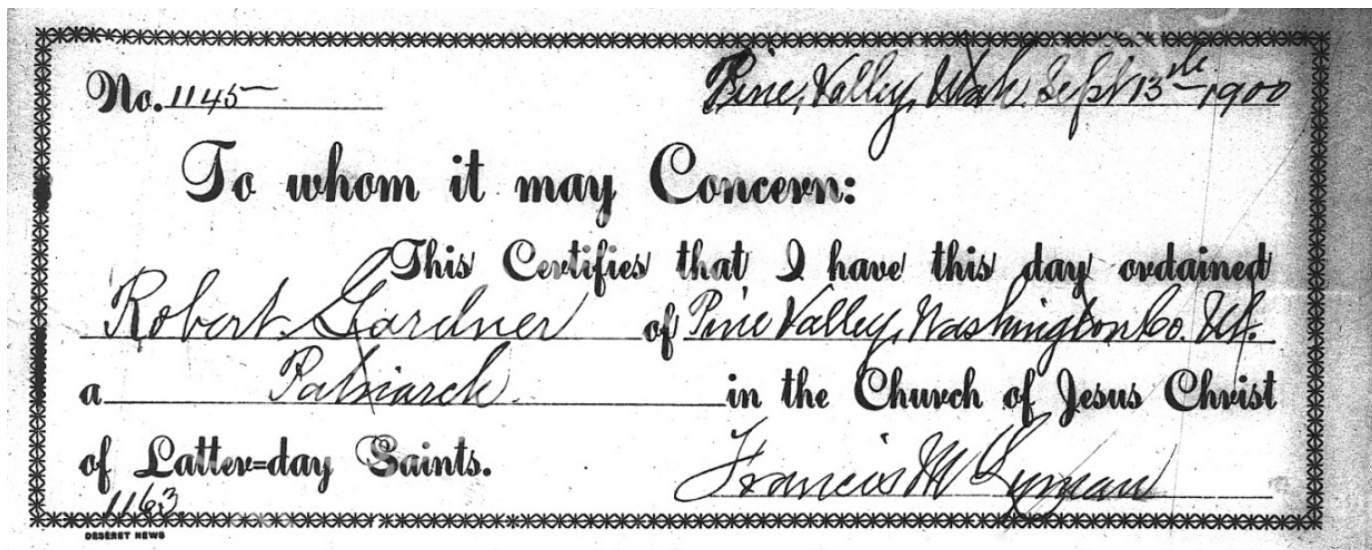 No. 1145 Pine, Valley, Utah. Sept 13th 1900
To whom it may Concern:
This Certifies that I have this day ordained
Robert Gardner of Pine Valley, Washington Co. Ut.
a Patriarch. in the Church of Jesus Christ
of Latter=day Saints. Francis M Lyman
1163.
DESERET NEWS